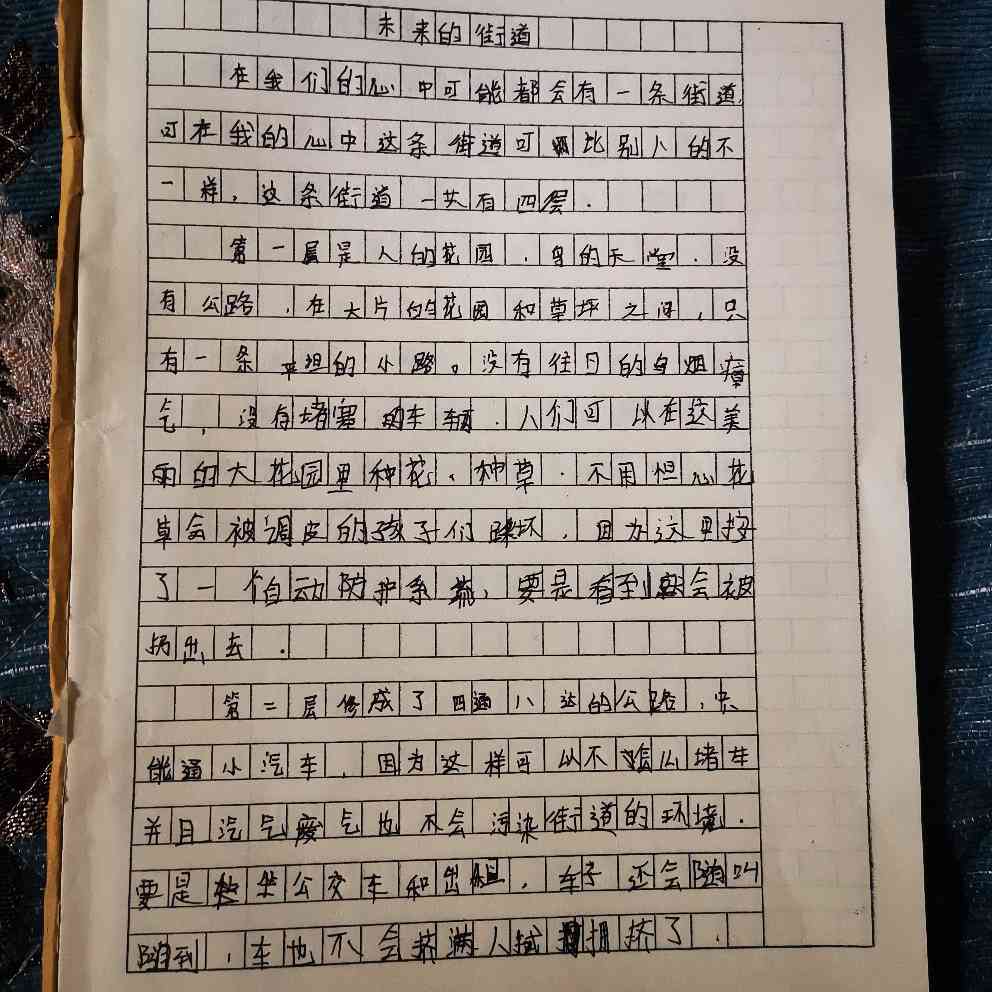 未来的街道
在我们的心中可能都会有一条街道,
可在我的心中这条街道可比别人的不
一样,这条街道一共有四层.
第一层是人的花园,鸟的天堂.没
有公路,在大片的花园和草坪之间,只
有一条平坦的小路。没有往日的乌烟瘴
气,没有堵塞的车辆.人们可以在这美
丽的大花园里种花、种草.不用担心花
草会被调皮的孩子们踩坏,因为这里按
了一个自动防护系统,要是看到就会被
扔出去.
第二层修成了四通八达的公路,只
能通小汽车,因为这样可以不担心堵车
并且汽气废气也不会污染街道的环境.
要是坐公交车和出租,车子还会随叫
随到,车也不会挤满人拥挤了.